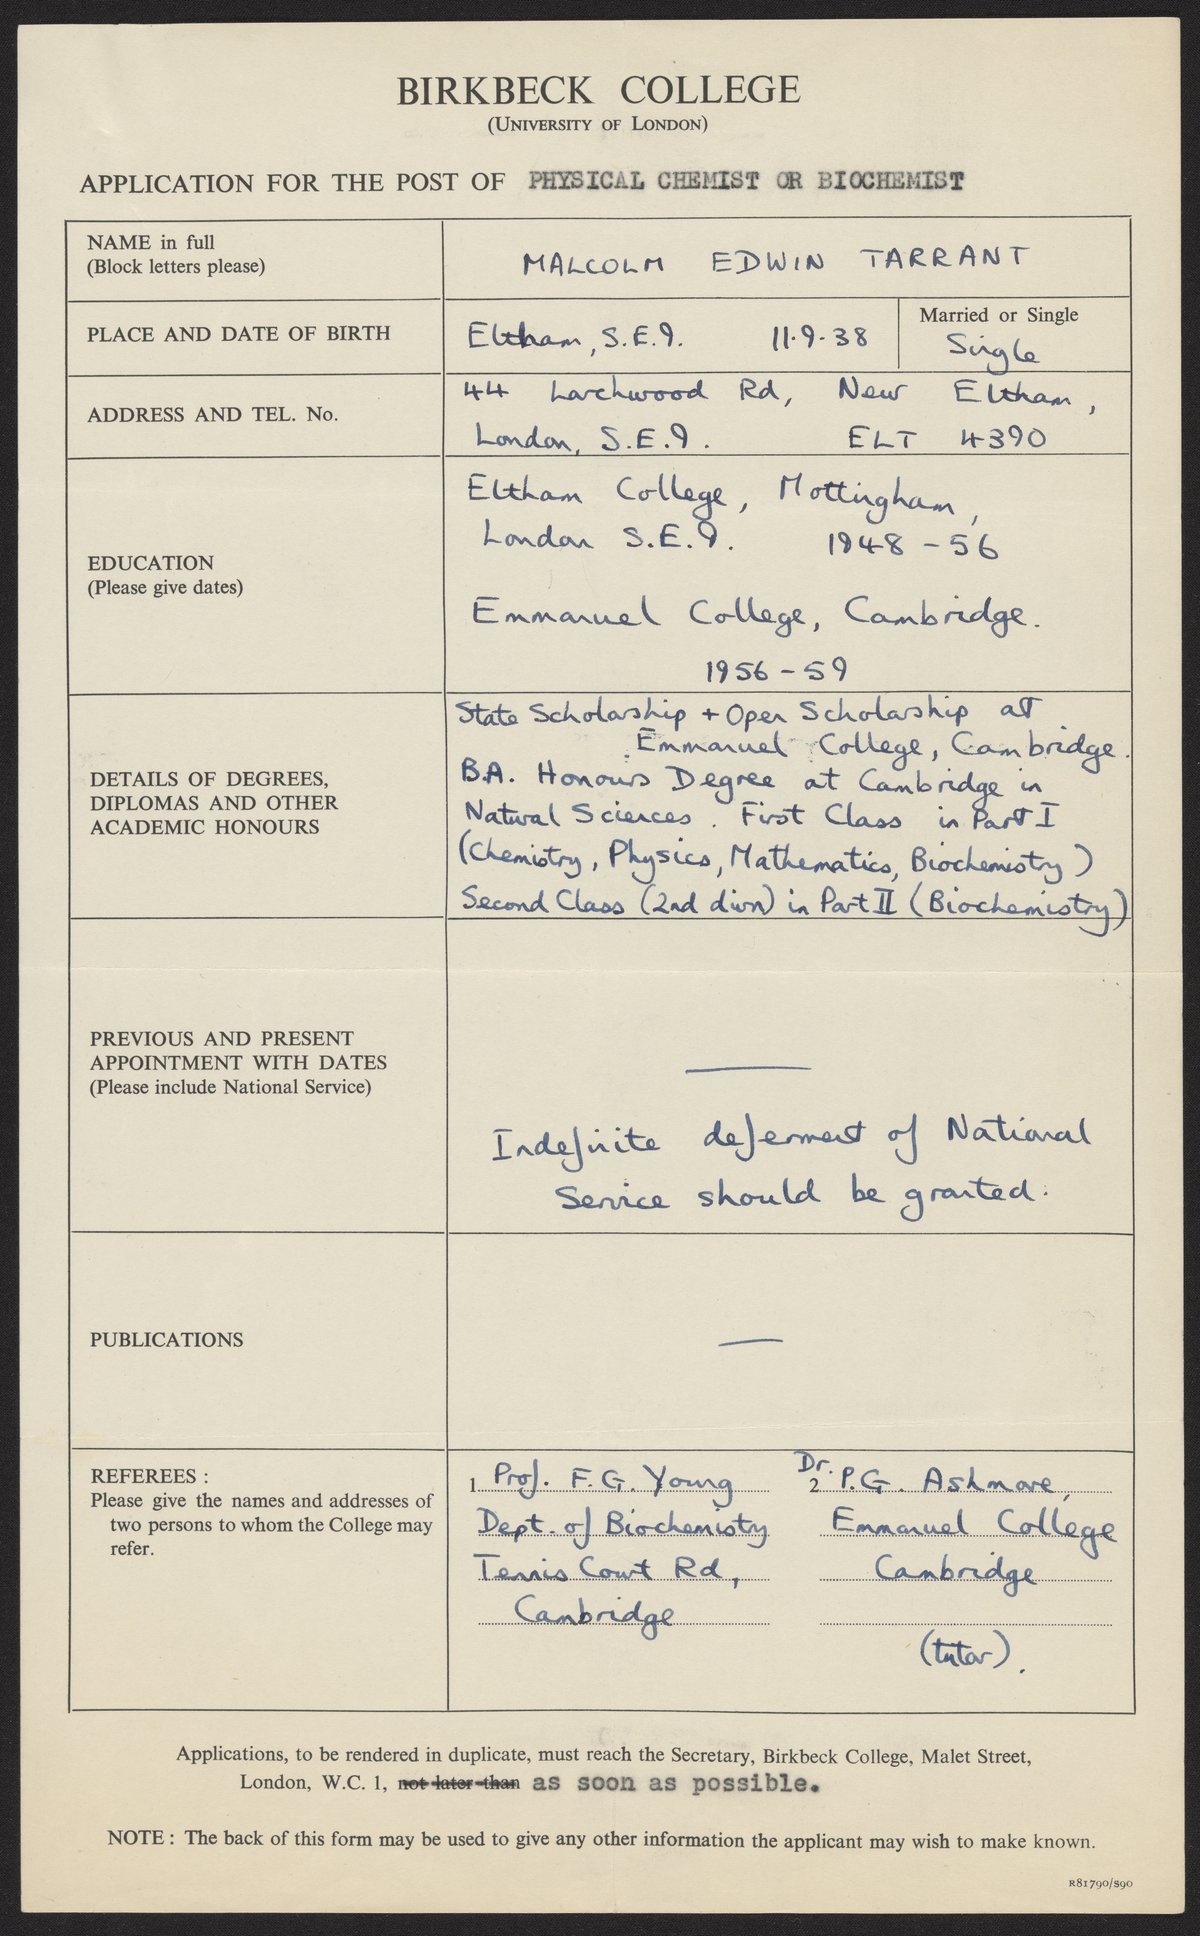 BIRKBECK COLLEGE
(UNIVERSITY OF LONDON)
APPLICATION FOR THE POST OF PHYSICAL CHEMIST OR BIOCHEMIST
NAME in full
(Block letters please)
MALCOLM EDWIN TARRANT
PLACE AND DATE OF BIRTH
Eltham, S.E.9. 11.9.38
Married or Single
Single
ADDRESS AND TEL. No.
44 Larchwood Rd, New Eltham,
London, S.E.9. ELT 4390
EDUCATION
(Please give dates)
Eltham College, Mottingham,
London S.E.9. 1948-56
Emmanuel College, Cambridge.
1956-59
DETAILS OF DEGREES,
DIPLOMAS AND OTHER
ACADEMIC HONOURS
State Scholarship + Open Scholarship at
Emmanuel College, Cambridge.
B.A. Honours Degree at Cambridge in
Natural Sciences. First Class in Part I
(Chemistry, Physics, Mathematics, Biochemistry)
Second Class (2nd divn) in Part II (Biochemistry)
PREVIOUS AND PRESENT
APPOINTMENT WITH DATES
(Please include National Service)
Indefinite deferment of National
Service should be granted.
PUBLICATIONS
REFEREES :
Please give the names and addresses of
two persons to whom the College may
refer.
1 Prof. F.G. Young
Dept. of Biochemistry
Tennis Court Rd,
Cambridge
2 Dr. P.G. Ashmore,
Emmanuel College
Cambridge
(tutor).
Applications, to be rendered in duplicate, must reach the Secretary, Birkbeck College, Malet Street,
London, W.C. 1, not later than as soon as possible.
NOTE : The back of this form may be used to give any other information the applicant may wish to make known.
R81790/S90